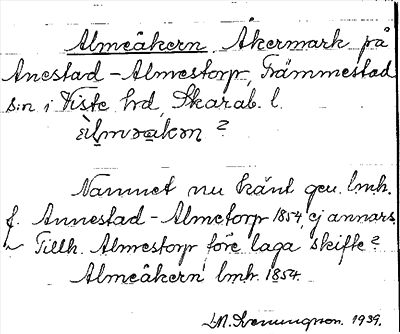 Almeåkern. Åkermark på
Anestad - Almestorp, Främmestad
s:n i Viste hd, Skarab. l.
Namnet nu känt gen. lmh.
f. Annestad - Almetorp 1854, ej annars.
Tillh. Almestorp före laga skifte?
Almeåkern lmh. 1854.
1939.